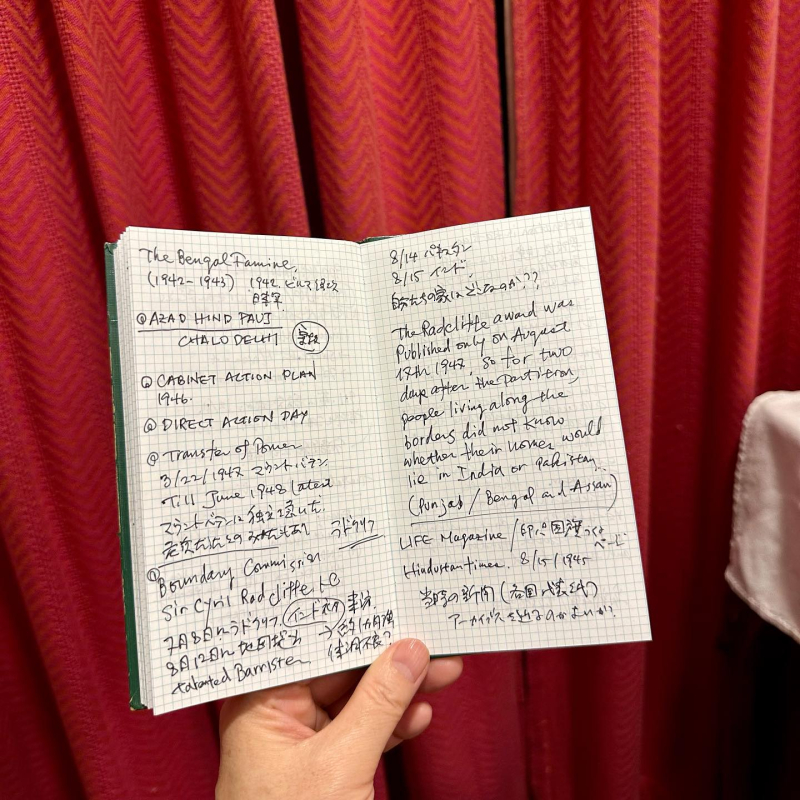 The Bengal Famine,
(1942-1943) 1942. ビルマ
日本軍
@AZAD HIND FAUJ
CHALO DELHI
@ CABINET ACTION PLAN
1946.
@ DIRECT ACTION DAY
@ Transfer of Power
3/22/1947 マウントバテン
Till June 1948 latest
マウントバテンは独立を急いだ.
ラドクリフ
Boundary Commission
Sir Cyril Radcliffe
7月8日にラドクリフ. インド
8月12日に地図 → 約1カ月強
talented Barrister
8/14 パキスタン
8/15 インド,
自分たちの家はどっちなのか??
The Radcliffe award was
Published only on August
17th 1947, so for two
days after the partition,
people living along the
borders did not know
whether their homes would
lie in India or Pakistan.
(Punjab / Bengal and Assam)
LIFE Magazine / 国旗
Hindustan times. 8/15/1945
当時の新聞 (各国代表紙)
アーカイブスを